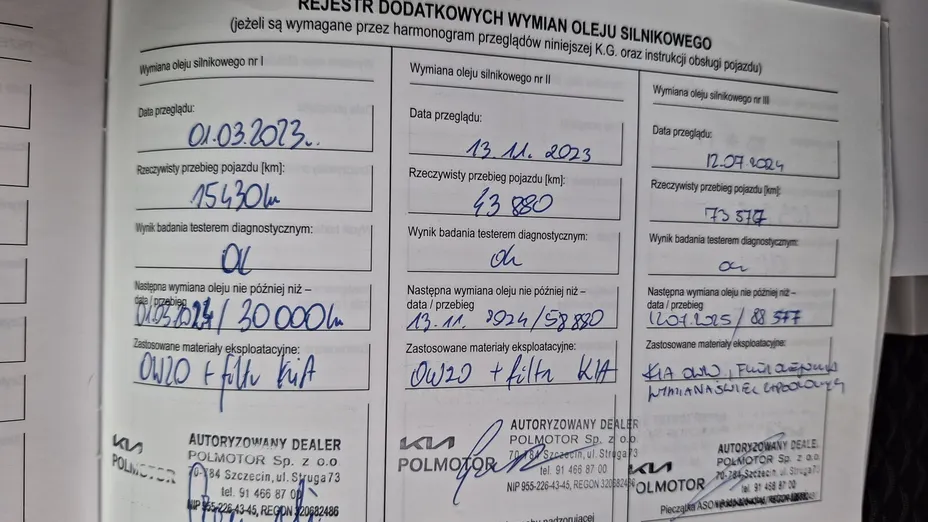 REJESTR DODATKOWYCH WYMIAN OLEJU SILNIKOWEGO
(jeżeli są wymagane przez harmonogram przeglądów niniejszej K.G. oraz instrukcji obsługi pojazdu)
Wymiana oleju silnikowego nr I
Data przeglądu:
01.03.2023
Rzeczywisty przebieg pojazdu [km]:
15430 km
Wynik badania testerem diagnostycznym:
ok
Następna wymiana oleju nie później niż –
data / przebieg
01.03.2024 / 30000 km
Zastosowane materiały eksploatacyjne:
0W20 + filtr KIA
KIA
POLMOTOR
AUTORYZOWANY DEALER
POLMOTOR Sp. z o.o.
70-784 Szczecin, ul. Struga 73
tel. 91 466 87 00
NIP 955-226-43-45, REGON 320682486
Wymiana oleju silnikowego nr II
Data przeglądu:
13.11.2023
Rzeczywisty przebieg pojazdu [km]:
43 880
Wynik badania testerem diagnostycznym:
ok
Następna wymiana oleju nie później niż –
data / przebieg
13.11.2024/58880
Zastosowane materiały eksploatacyjne:
0W20 + filtr KIA
KIA
POLMOTOR
AUTORYZOWANY DEALER
POLMOTOR Sp. z o.o.
70-784 Szczecin, ul. Struga 73
tel. 91 466 87 00
NIP 955-226-43-45, REGON 320682486
nadzorującej
Wymiana oleju silnikowego nr III
Data przeglądu:
12.07.2024
Rzeczywisty przebieg pojazdu [km]:
73 577
Wynik badania testerem diagnostycznym:
ok
Następna wymiana oleju nie później niż –
data / przebieg
12.07.2025 / 88 577
Zastosowane materiały eksploatacyjne:
KIA
WYMIANA ŚWIEC ZAPŁONOWYCH
KIA
POLMOTOR
AUTORYZOWANY DEALER
POLMOTOR Sp. z o.o.
70-784 Szczecin, ul. Struga 73
tel. 91 466 87 00
Pieczątka ASO